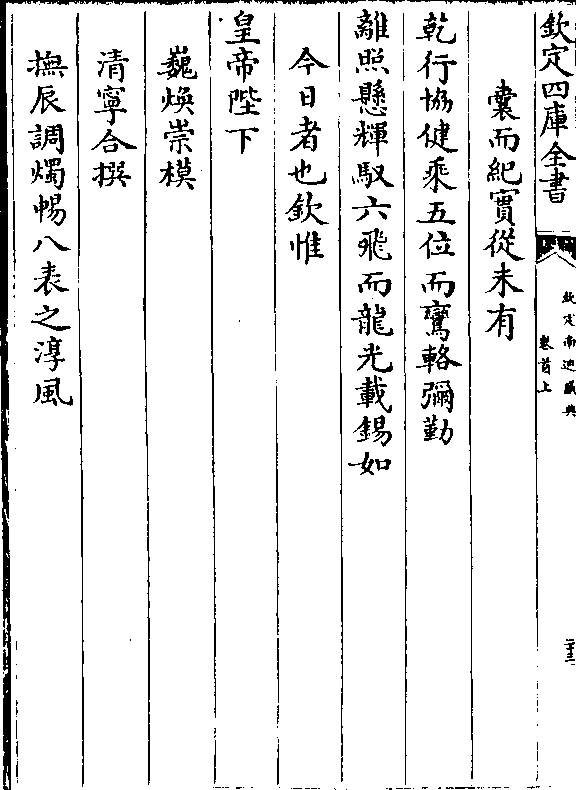 欽定四庫全書
欽定南巡盛典
卷首上
二十三
囊而紀實從未有
乾行協健乘五位而鸞輅彌勤
離照懸輝馭六飛而龍光載錫如
今日者也欽惟
皇帝陛下
巍煥崇模
清寧合撰
撫辰調燭暢八表之淳風